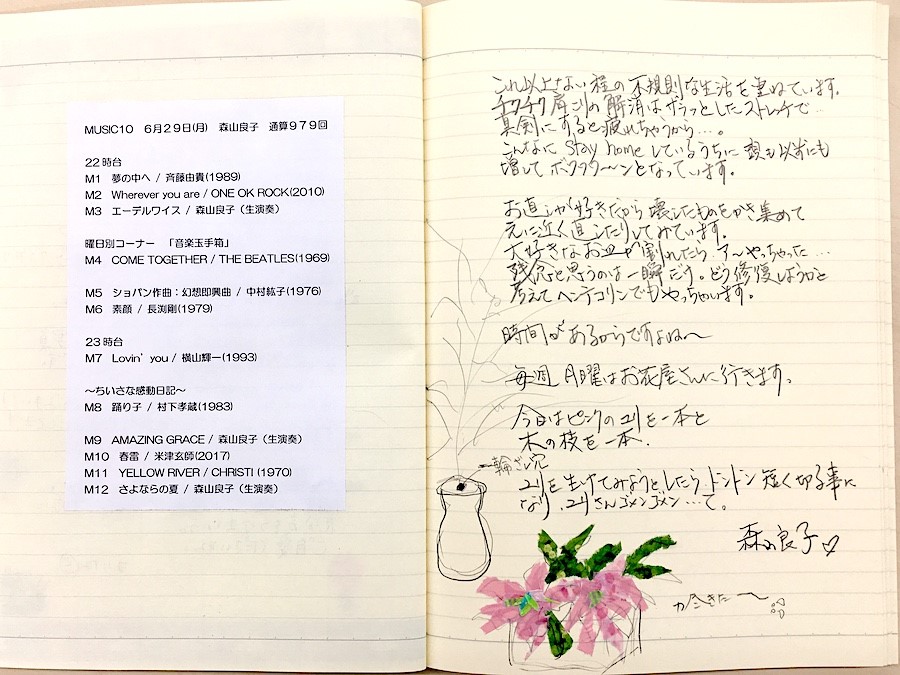 MUSIC10 6月29日(月) 森山良子 通算979回
22時台
M1 夢の中へ / 斉藤由貴(1989)
M2 Wherever you are / ONE OK ROCK(2010)
M3 エーデルワイス / 森山良子（生演奏）
曜日別コーナー 「音楽玉手箱」
M4 COME TOGETHER / THE BEATLES(1969)
M5 ショパン作曲：幻想即興曲 / 中村紘子(1976)
M6 素顔 / 長渕剛(1979)
23時台
M7 Lovin' you / 横山輝一(1993)
～ちいさな感動日記～
M8 踊り子 / 村下孝蔵(1983)
M9 AMAZING GRACE / 森山良子（生演奏）
M10 春雷 / 米津玄師(2017)
M11 YELLOW RIVER / CHRISTI (1970)
M12 さよならの夏 / 森山良子（生演奏）
これ以上ない程の不規則な生活を重ねています。
チクチク肩こりの解消はダラッとしたストレッチで…
真剣にすると疲れちゃうから…。
こんなに Stay home しているうちに 想も以ずにも
増して ボクラターンとなっています。
お直しが好きだから 壊したものをかき集めて
元に近く直したりしてみています。
大好きなお皿が割れたら、ア〜やっちゃった…
残念と思うのは一瞬だけ。どう修復しようかと
考えて ヘンテコリンでもやっちゃいます。
時間があるからですよね〜
毎週 月曜はお花屋さんに行きます。
今日はピンクのユリを一本と
木の枝を一本.
一輪ざし穴
ユリを生けてみようとしたら、ドンドン短く切る事に
なり、ユリさんゴメンゴメン…て。
森山良子♡
力つきた〜